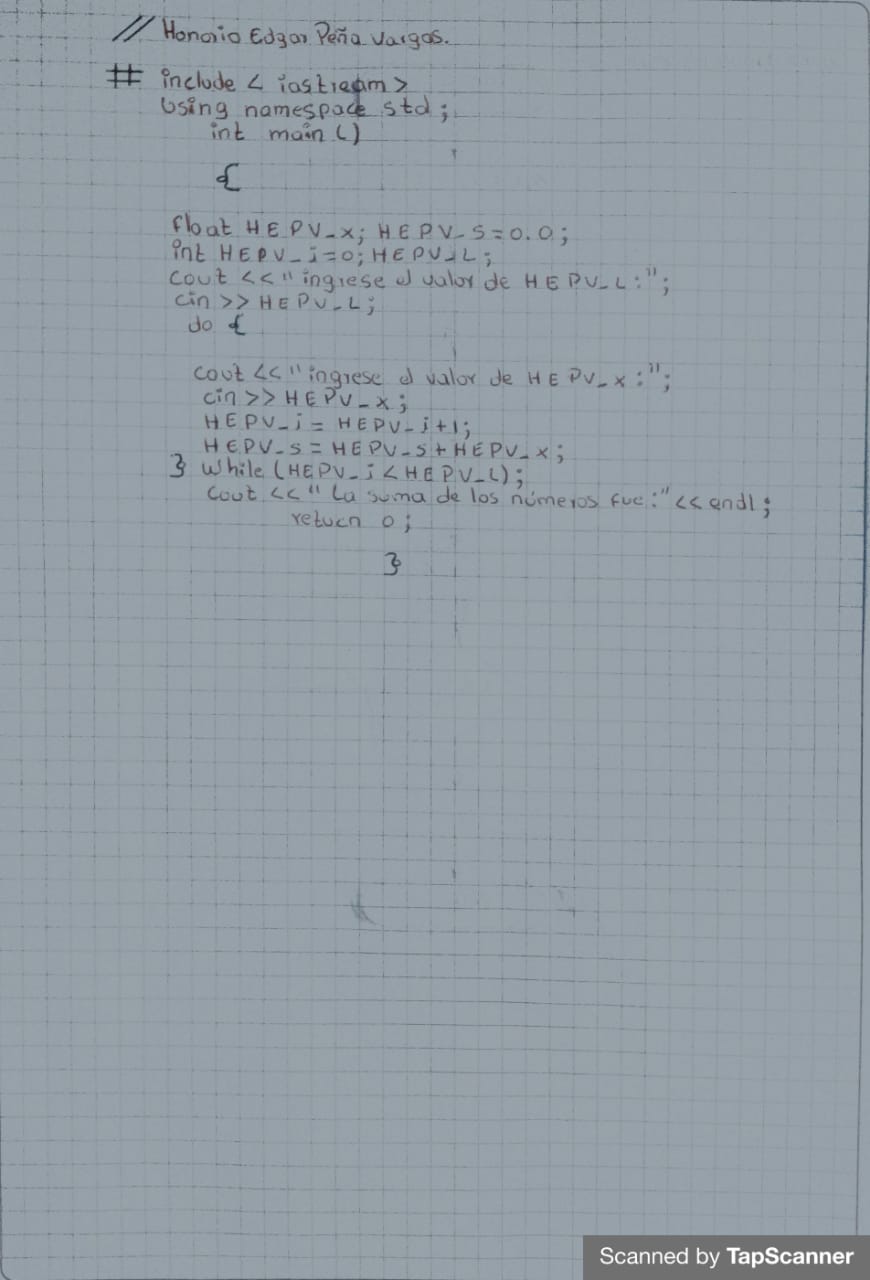 // Honorio Edgar Peña Vargas.
# include < iostream>
Using namespace std;
int main ()
{
float HEPV_x; HEPV_S=0.0;
int HEPV_i=0; HEPV_L;
cout <<"ingrese el valor de HEPV_L:";
cin >> HEPV_L;
do {
cout <<"ingrese el valor de HEPV_x:";
cin >> HEPV_x;
HEPV_i = HEPV_i+1;
HEPV_s = HEPV_s + HEPV_x;
} while (HEPV_i < HEPV_L);
cout <<" La suma de los números fue:" << endl;
return 0;
}
Scanned by TapScanner